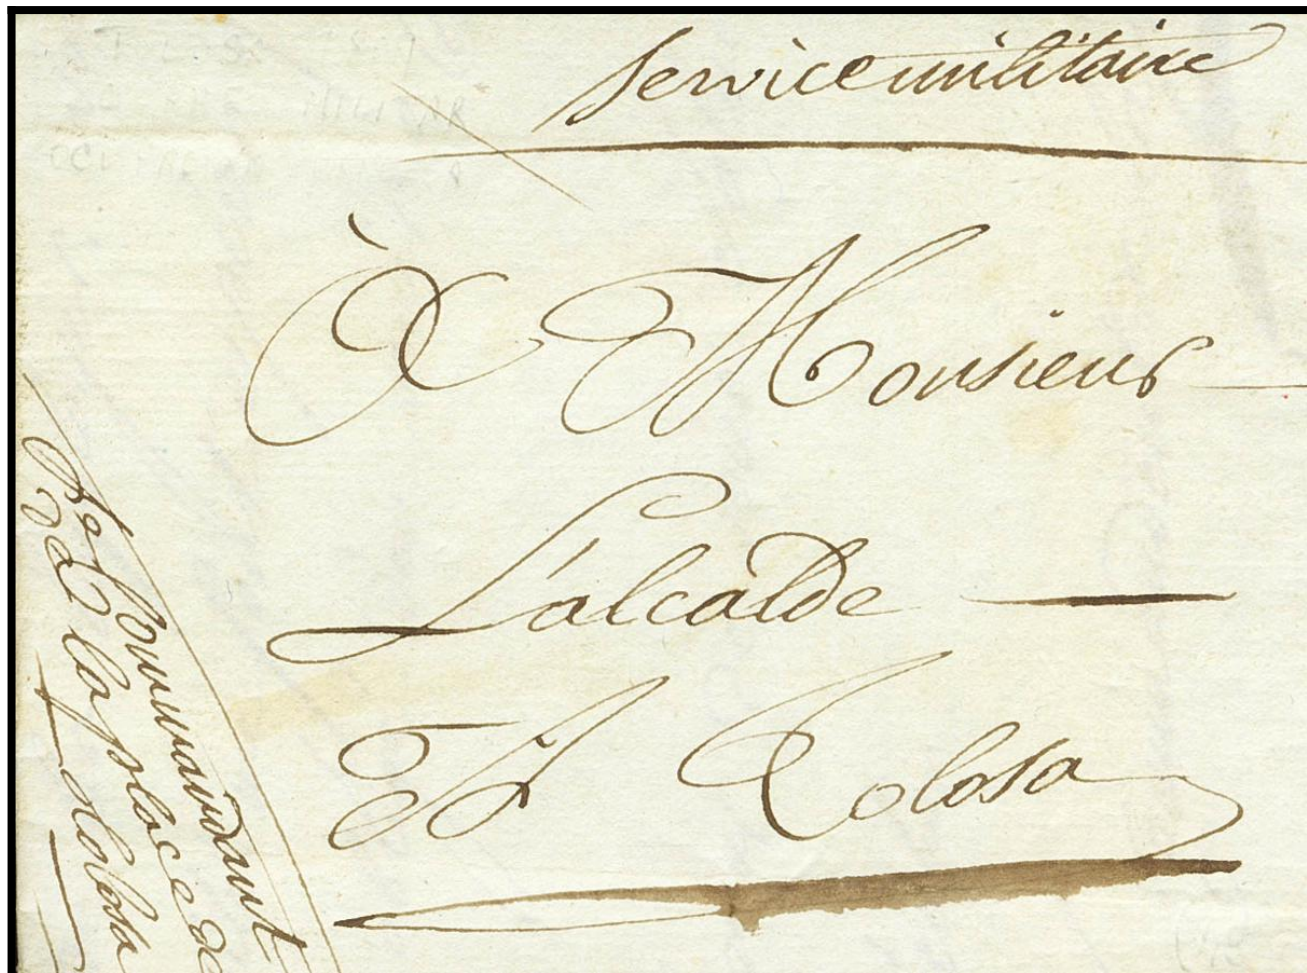 service militaire
à Monsieur
L'alcalde
À Tolosa
Commandant
de la place de
Tolosa